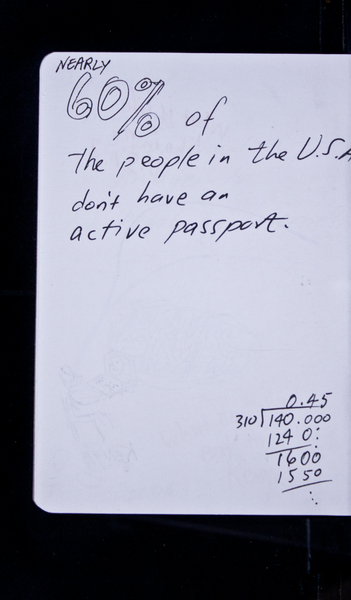 NEARLY
60% of
the people in the U.S.A
don't have an
active passport.
0.45
310 140.000
124 0:
1600
1550